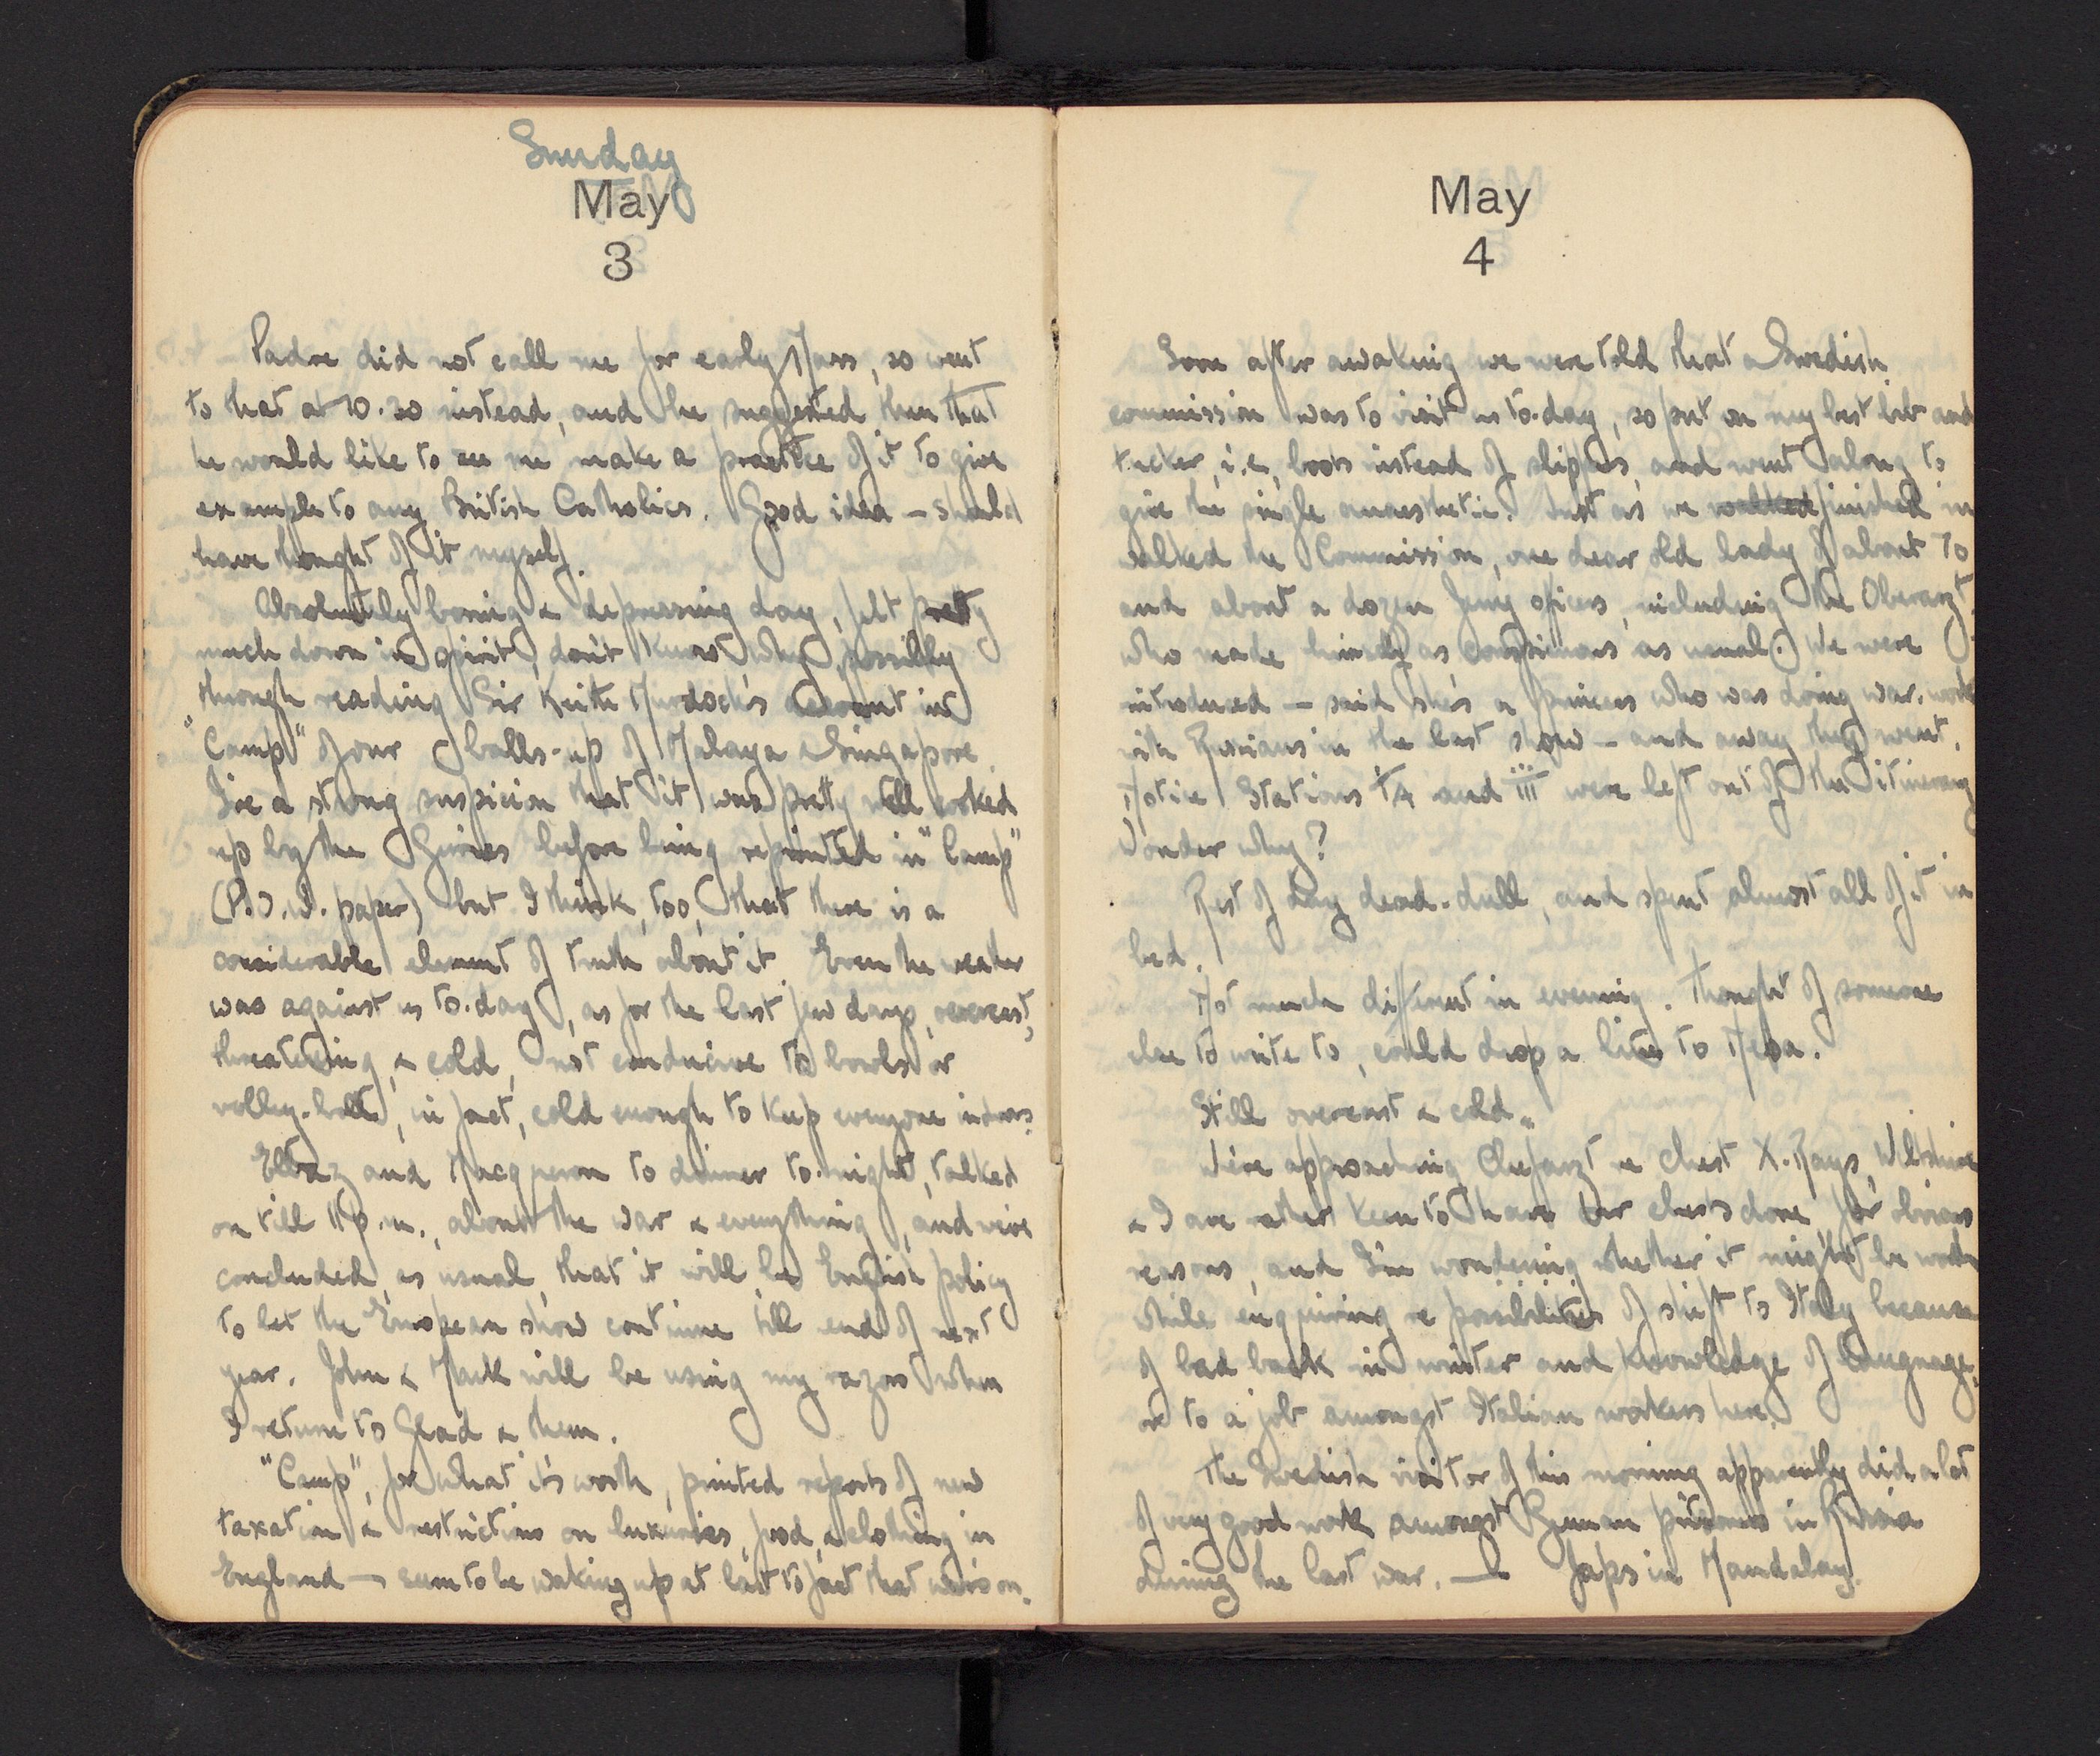 Sunday
May
3
Padre did not call me for early Mass, so went
to that at 10.30 instead, and he suggested then that
he would like to see me make a practice of it to give
example to any British Catholics. Good idea – should
have thought of it myself.
Absolutely boring & depressing day, felt pretty
much down in spirit, don't know why, possibly
through reading Sir Keith Murdock's account in
"Camp" of our balls-up of Malaya & Singapore.
I've a strong suspicion that it was pretty well cooked
up by the Germans before being reprinted in "Camp"
(P.O.W. paper) but I think, too, that there is a
considerable element of truth about it. Even the weather
was against us to-day, as for the last few days, overcast,
threatening, & cold, not conducive to bowls or
volley-ball, in fact, cold enough to keep everyone indoors.
and to dinner to-night, talked
on till 11 p.m., about the war & everything, and we've
concluded, as usual, that it will be English policy
to let the European show continue till end of next
year. John & Mark will be using my razor when
I return to Glad & them.
"Camp", for what it's worth, printed reports of new
taxation & restrictions on luxuries, food, & clothing in
England – seem to be waking up at last to fact that war is on.
May
4
Soon after awaking we were told that a Swedish
commission was to visit us to-day, so put on my best bib and
tucker, i.e. boots instead of slippers, and went along to
give the single anaesthetic. Just as we walked finished in
walked the Commission, one dear old lady of about 70
and about a dozen Jerry officers, including the Oberarzt,
who made himself as conspicuous as usual. We were
introduced – said she's a princess who was doing war-work
with Russians in the last show – and away they went.
Notice Stations and III were left out of the itinerary
Wonder why?
Rest of day dead-dull, and spent almost all of it in
bed.
Not much different in evening. Thought of someone
else to write to, could drop a line to
Still overcast & cold.
We're approaching Chefarzt re chest X-Rays, Wiltshire
& I are rather keen to have our chests done for obvious
reasons, and I'm wondering whether it might be worth
while enquiring re possibilities of shift to Italy because
of bad back in winter and knowledge of language,
or to a job amongst Italian workers here.
The Swedish visitor of this morning apparently did a lot
of very good work amongst German prisoners in Russia
during the last war. — Japs in Mandalay.